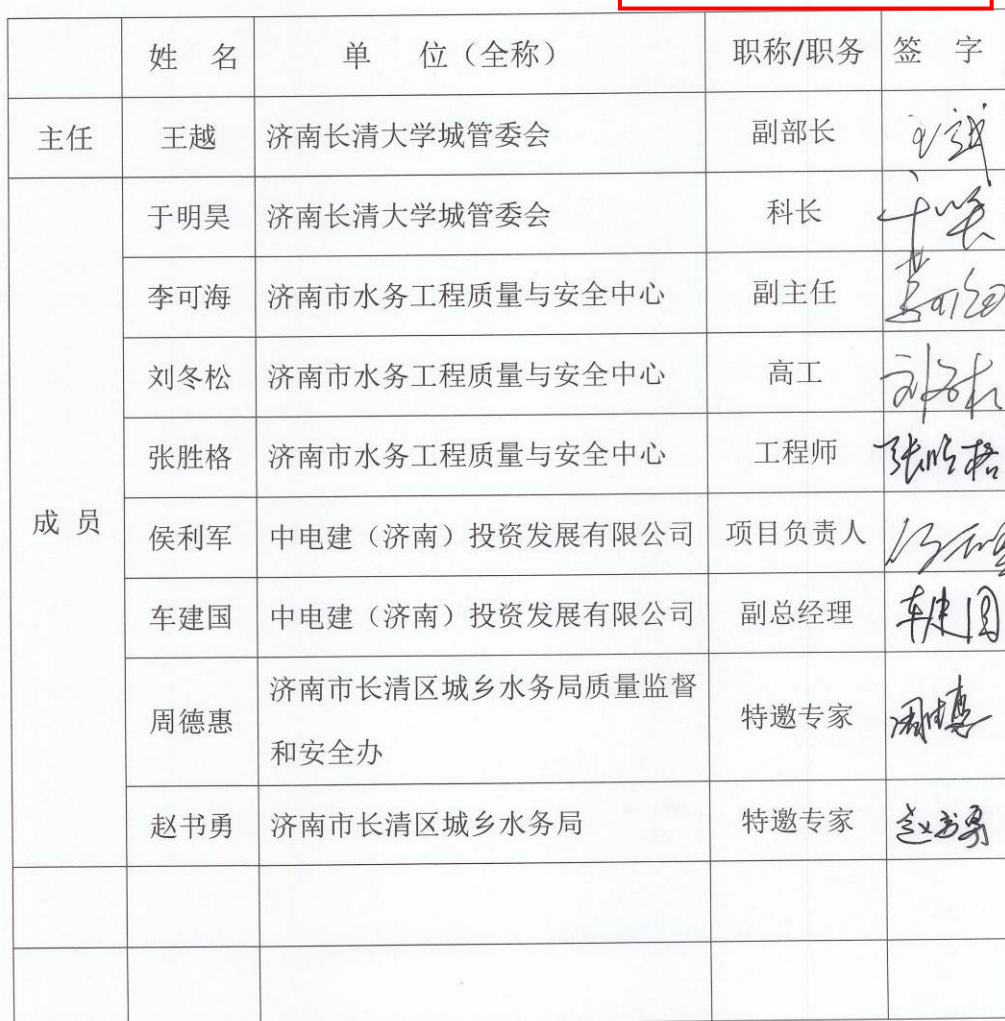 姓 名 单 位（全称） 职称/职务 签 字
主任 王越 济南长清大学城管委会 副部长
于明昊 济南长清大学城管委会 科长
李可海 济南市水务工程质量与安全中心 副主任
刘冬松 济南市水务工程质量与安全中心 高工 刘冬松
张胜格 济南市水务工程质量与安全中心 工程师 张胜格
成 员 侯利军 中电建（济南）投资发展有限公司 项目负责人
车建国 中电建（济南）投资发展有限公司 副总经理 车建国
周德惠 济南市长清区城乡水务局质量监督
和安全办 特邀专家 周德惠
赵书勇 济南市长清区城乡水务局 特邀专家 赵书勇